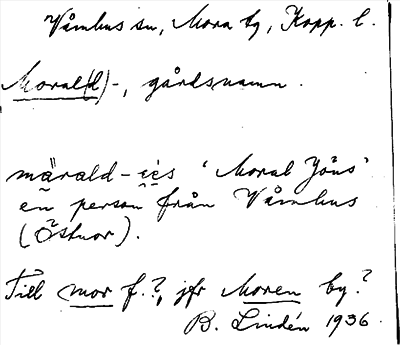 Våmhus sn, Mora tg, Kopp. l.
Moral(d)-, gårdsnamn.
märald-ićs 'Moral Jöns'
en person från Våmhus
(Östnor).
Till mor f.?, jfr Moren by?
B. Lindén 1936.